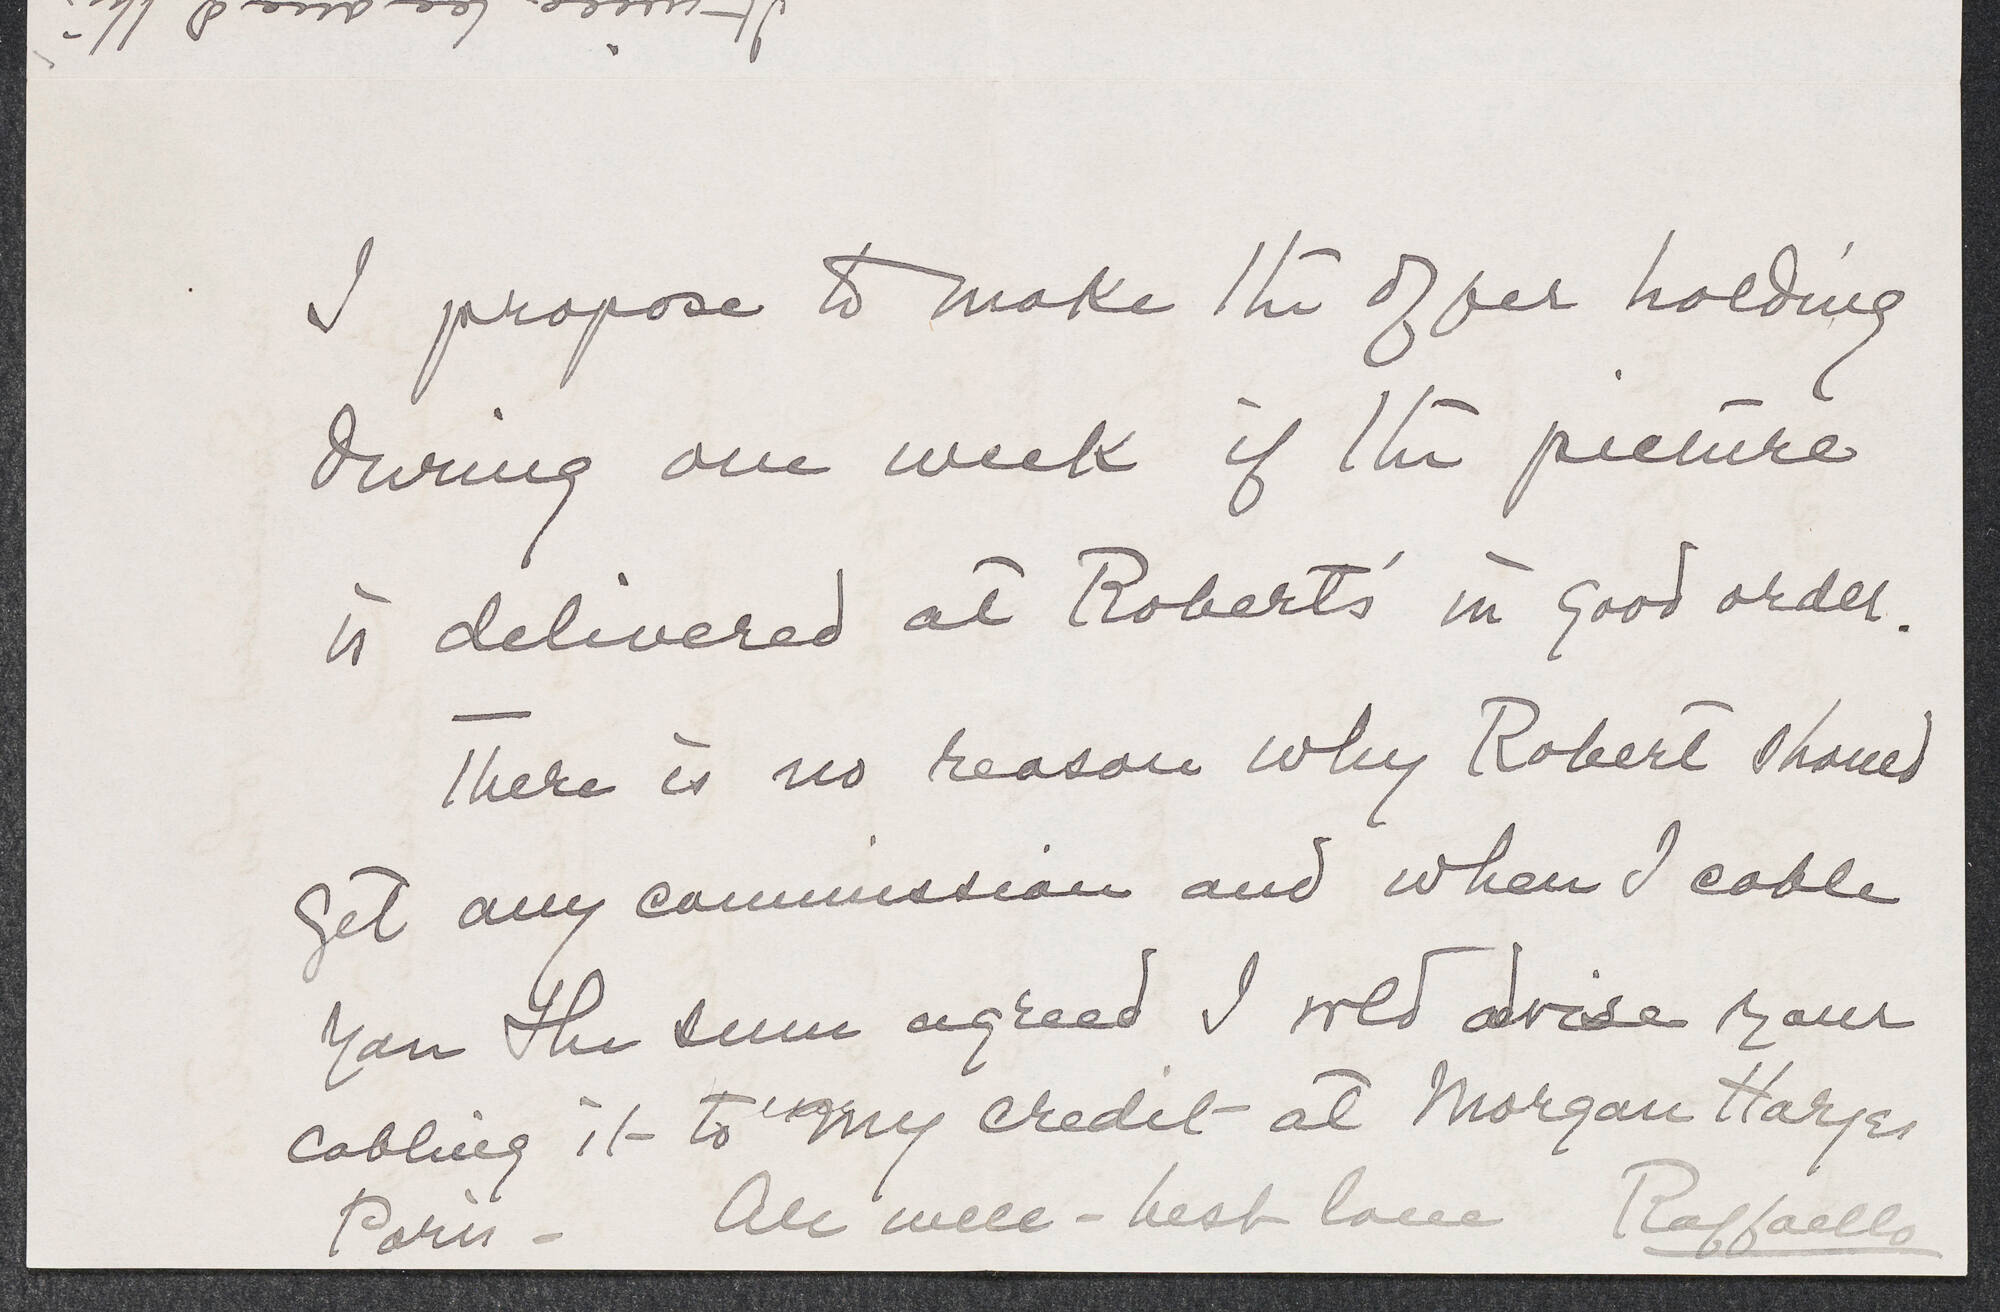 I propose to make the offer holding
during one week if the picture
is delivered at Roberts' in good order.
There is no reason why Robert should
get any commission and when I cable
you the sum agreed I wld advise your
cabling it to my credit at Morgan Harjes
Paris - All well - best love Raffaello